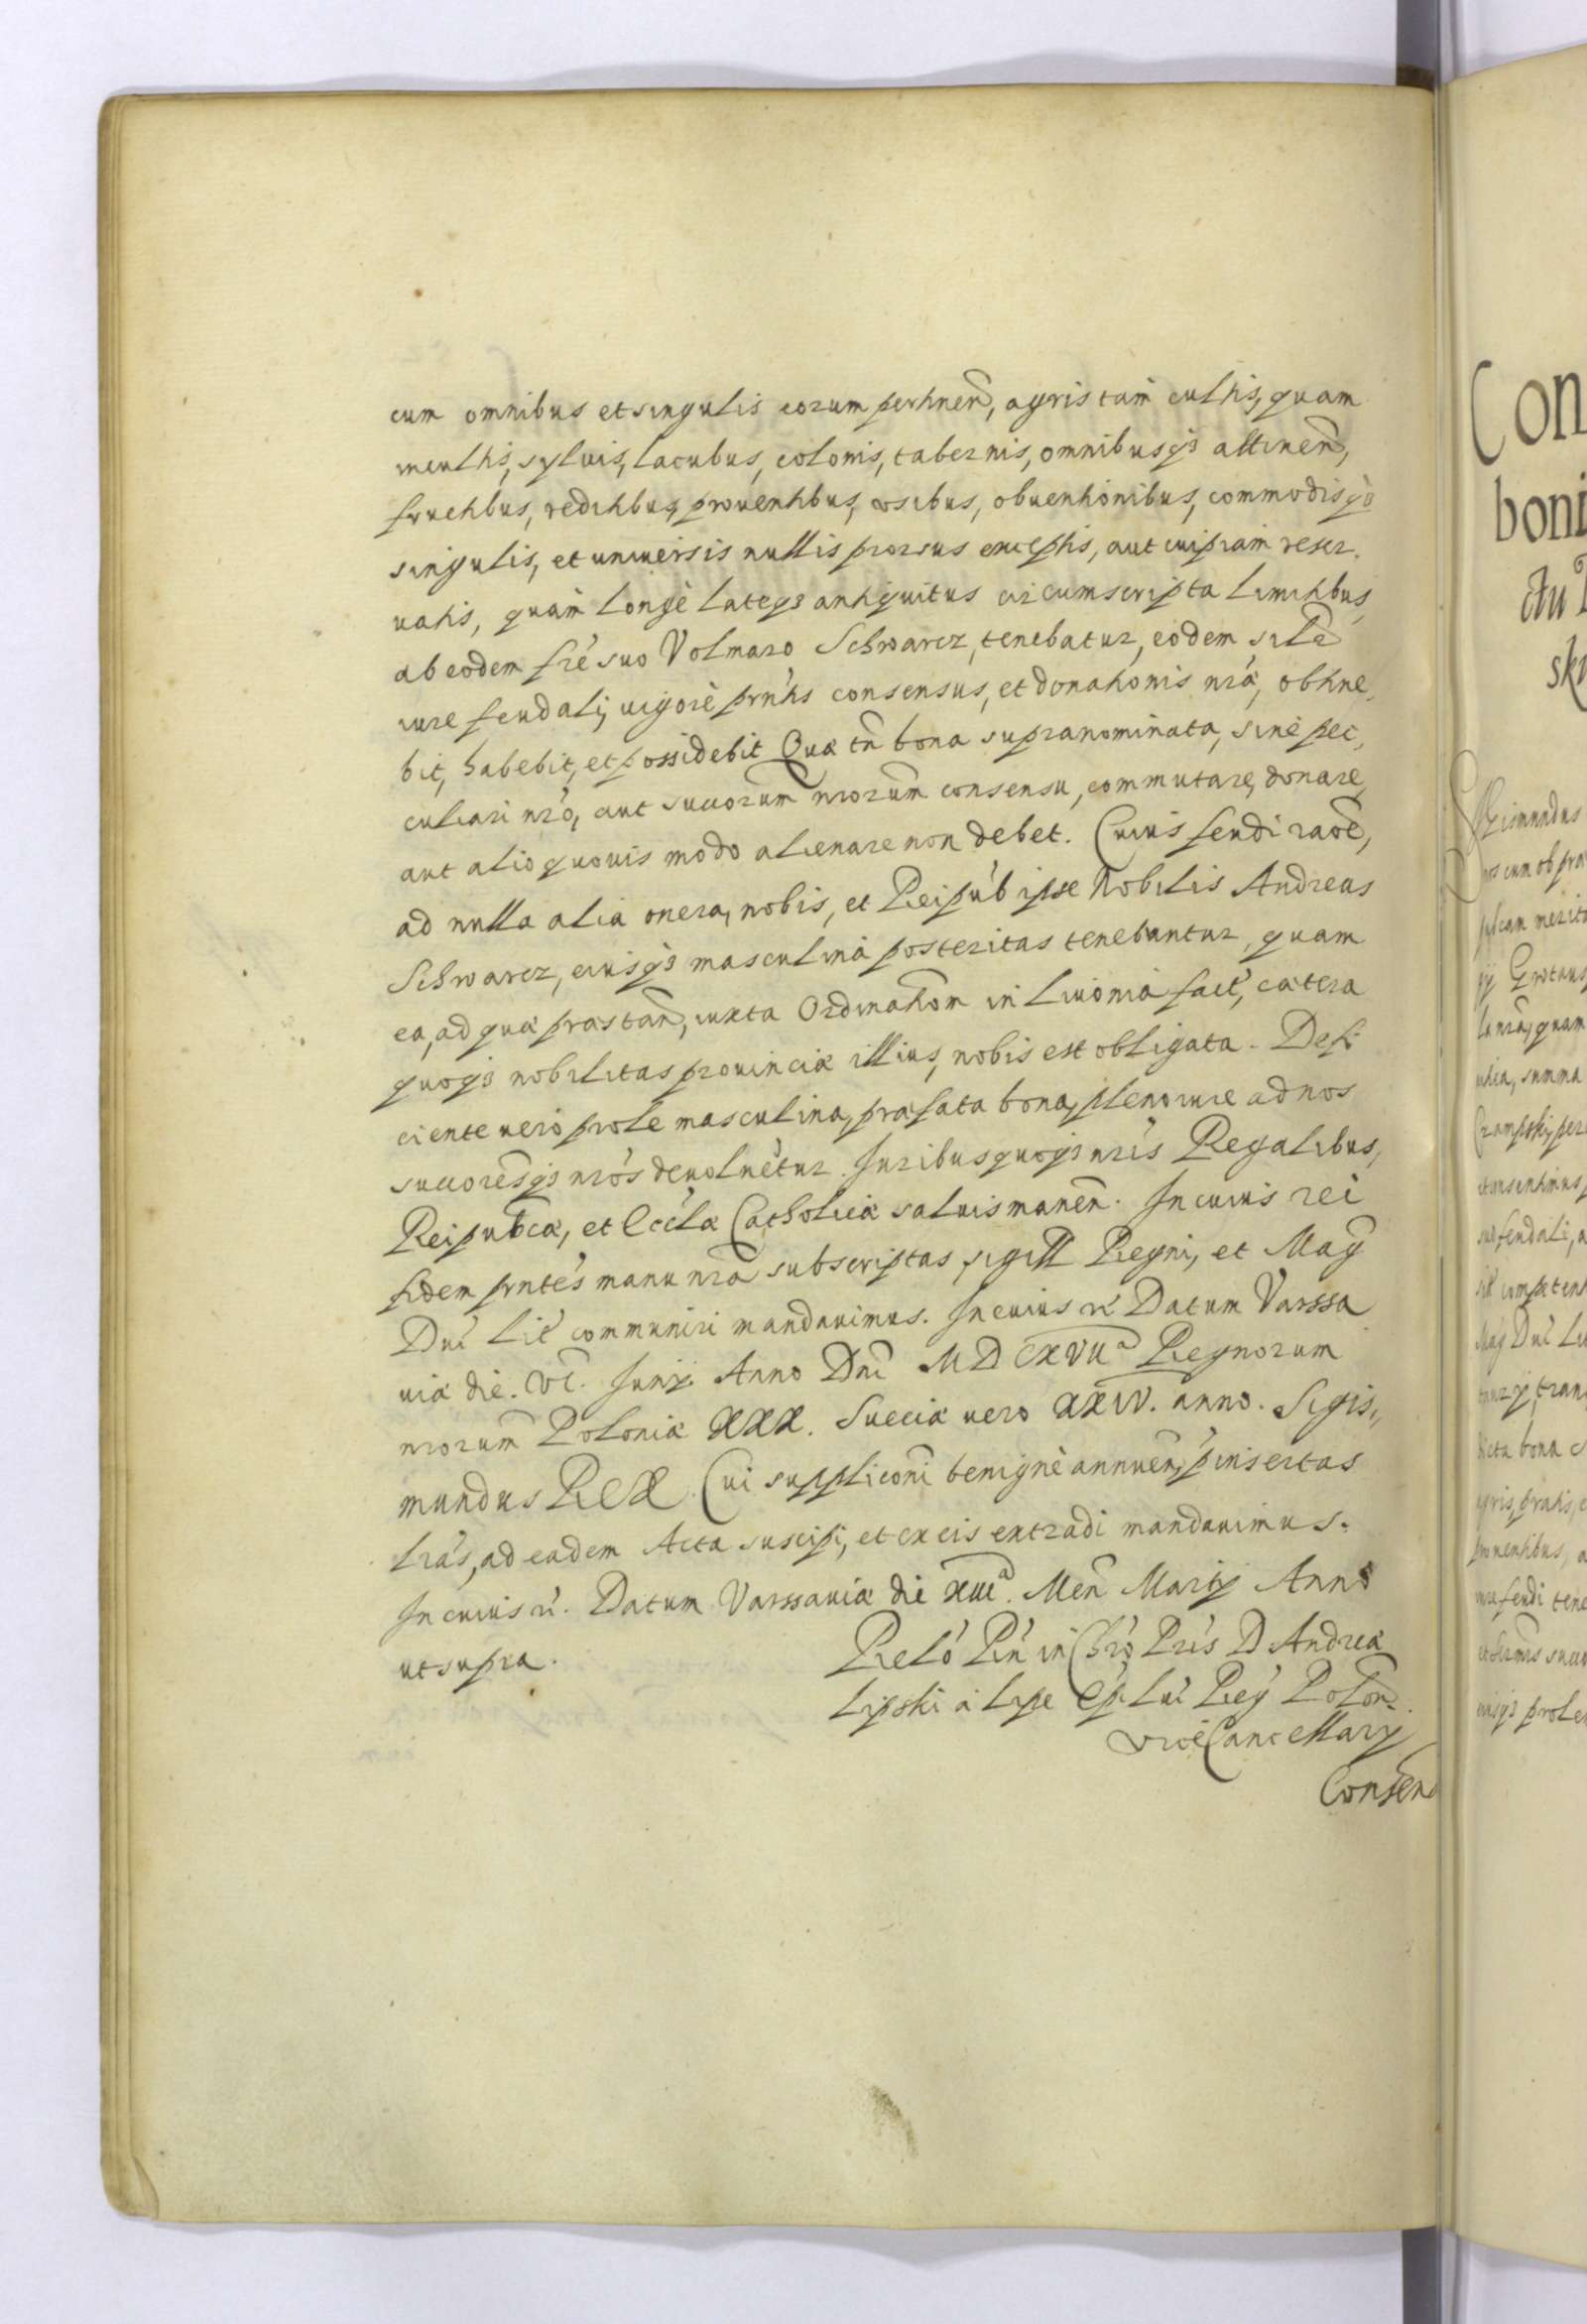 cum omnibus et singulis eorum pertinen̄, agris tam̀ cultis, quam
incultis, syluis, lacubus, colonis, tabernis, omnibusqȝ attinen̄,
fructibus, reditibus, prouentibus, vsibus, obuentionibus, commodisqȝ
singulis, et uniuersis nullis prorsus exceptis, aut cuipiam reser,
uatis, quam̀ longè lateqȝ antiquitus circumscripta limitibus,
ab eodem fr̃e suo Volmaro Schwarcz, tenebatur, eodem sil̃e
iure feudali, uigorè prn̕tis consensus, et donationis nr̃æ, obtine,
bit, habebit, et possidebit Quæ tñ bona supranominata, sinè pec,
culiari nr̃o, aut succorum̃ nrorum̃ consensu, commutare, donare,
aut alio quouis modo alienare non debet. Cuius feudi raoẽ,
ad nulla alia onera, nobis, et Reipub́ ipse Nobilis Andreas
Schwarcz, eiusqȝ masculina posteritas tenebantur, quam
ea, ad quæ præstan̄, iuxta Ordinatiõm in Liuonia fact́, cætera
quoqȝ nobilitas prouinciæ illius, nobis est obligata. Defi
ciente uero prole masculina, præfata bona, pleno iure ad nos
succoresq̃ȝ nrós deuoluètur. Juribus quoqȝ nrís Regalibus,
Reipub̃cæ, et Eccĺæ Catholicæ saluis manen̄. In cuius rei
fidem prntés manu nrã subscriptas, sigill̃ Regni, et Mag̃
Duć Lit́ communiri mandauimus. In cuius rí Datum Varssa
uiæ die. VĨ. Junij. Anno Dnĩ MDCXVIIº Regnorum
nrorum̃ Poloniæ XXX. Sueciæ uero XXIV. anno. Sigis,,
mundus REX. Cui supplicoñi benignè annuen̄, p̕insertas
lrás, ad eadem Acta suscipi, et ex eis extradi mandauimus.
In cuius rí. Datum Varssauiæ die XIIIª. Men̄ Martij Anno
ut supra.
Reló Rń in Chró Prís D Andreæ
Lipski à Lipe Eṕi Luć Reg̕ Polon̄.
ViceCancellarij
Consen
Con
boni
ctu
ski